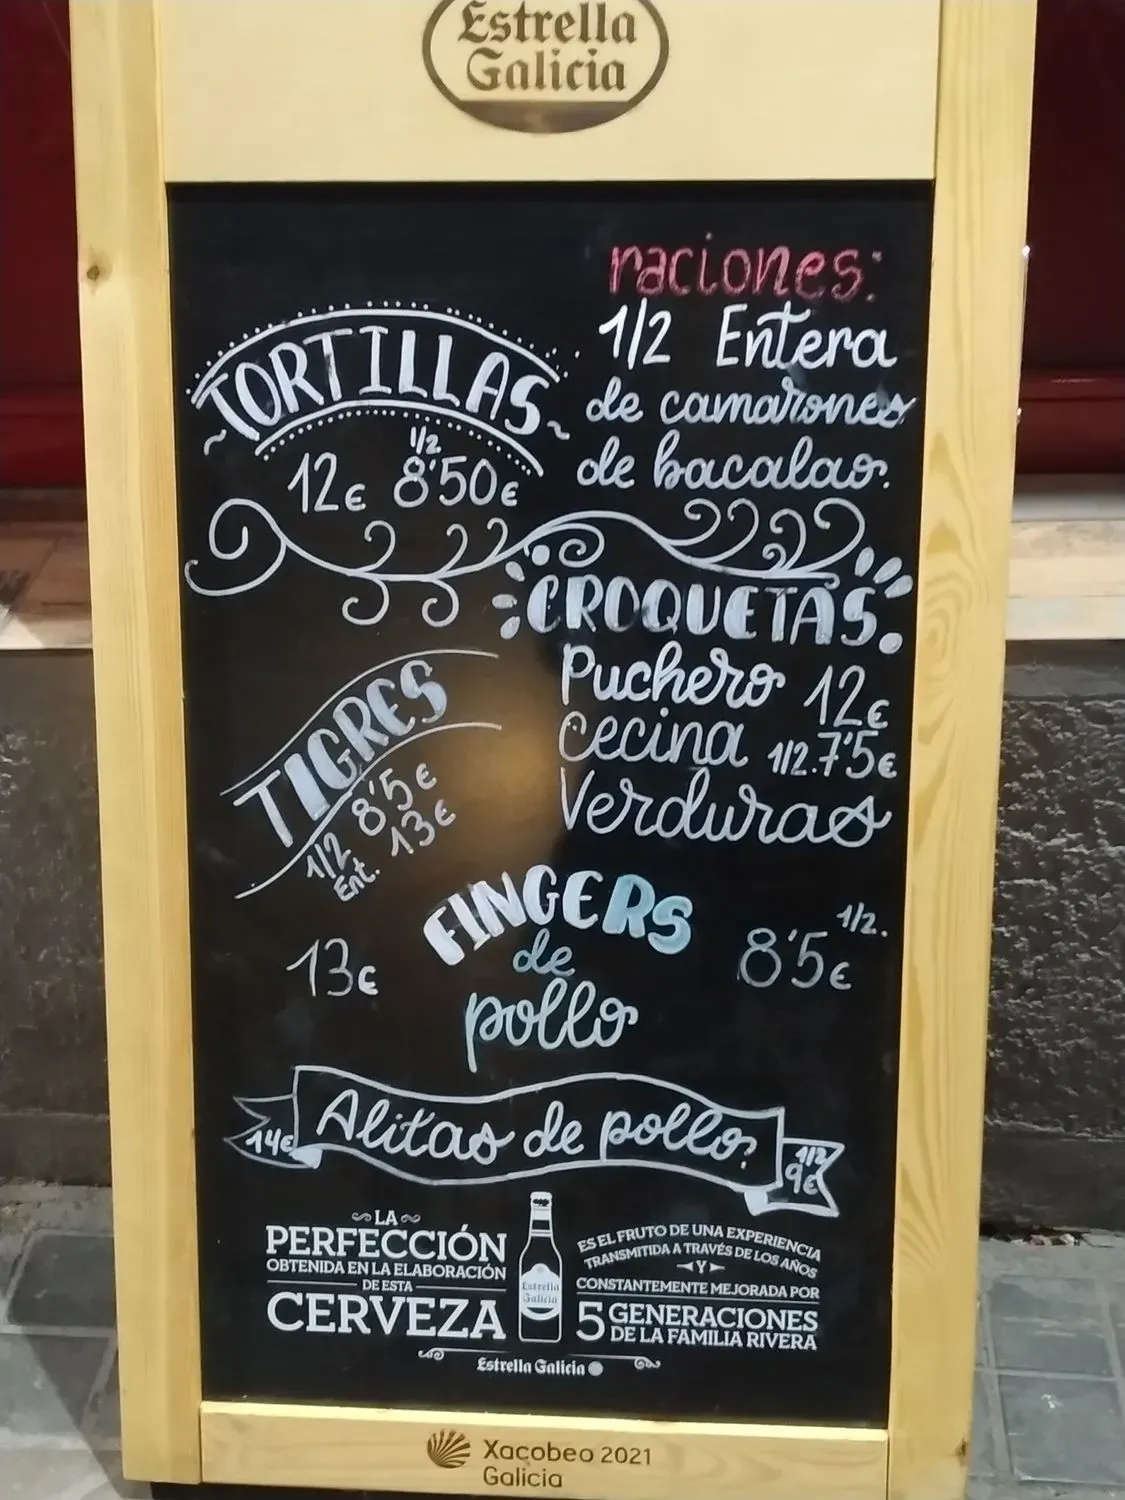 Estrella
Galicia
raciones:
1/2 Entera
de camarones
de bacalao.
TORTILLAS
1/2
12€ 8'50€
CROQUETAS.
Puchero 12€
Cecina 1/2.7'5€
Verduras
TIGRES
1/2 8'5€
Ent. 13€
FINGERS
de
pollo
13€
1/2.
8'5€
14€
Alitas de pollo.
1/2
9€
LA
PERFECCIÓN
OBTENIDA EN LA ELABORACIÓN
DE ESTA
CERVEZA
Estrella
Galicia
ES EL FRUTO DE UNA EXPERIENCIA
TRANSMITIDA A TRAVÉS DE LOS AÑOS
Y
CONSTANTEMENTE MEJORADA POR
5 GENERACIONES
DE LA FAMILIA RIVERA
Estrella Galicia
Xacobeo 2021
Galicia